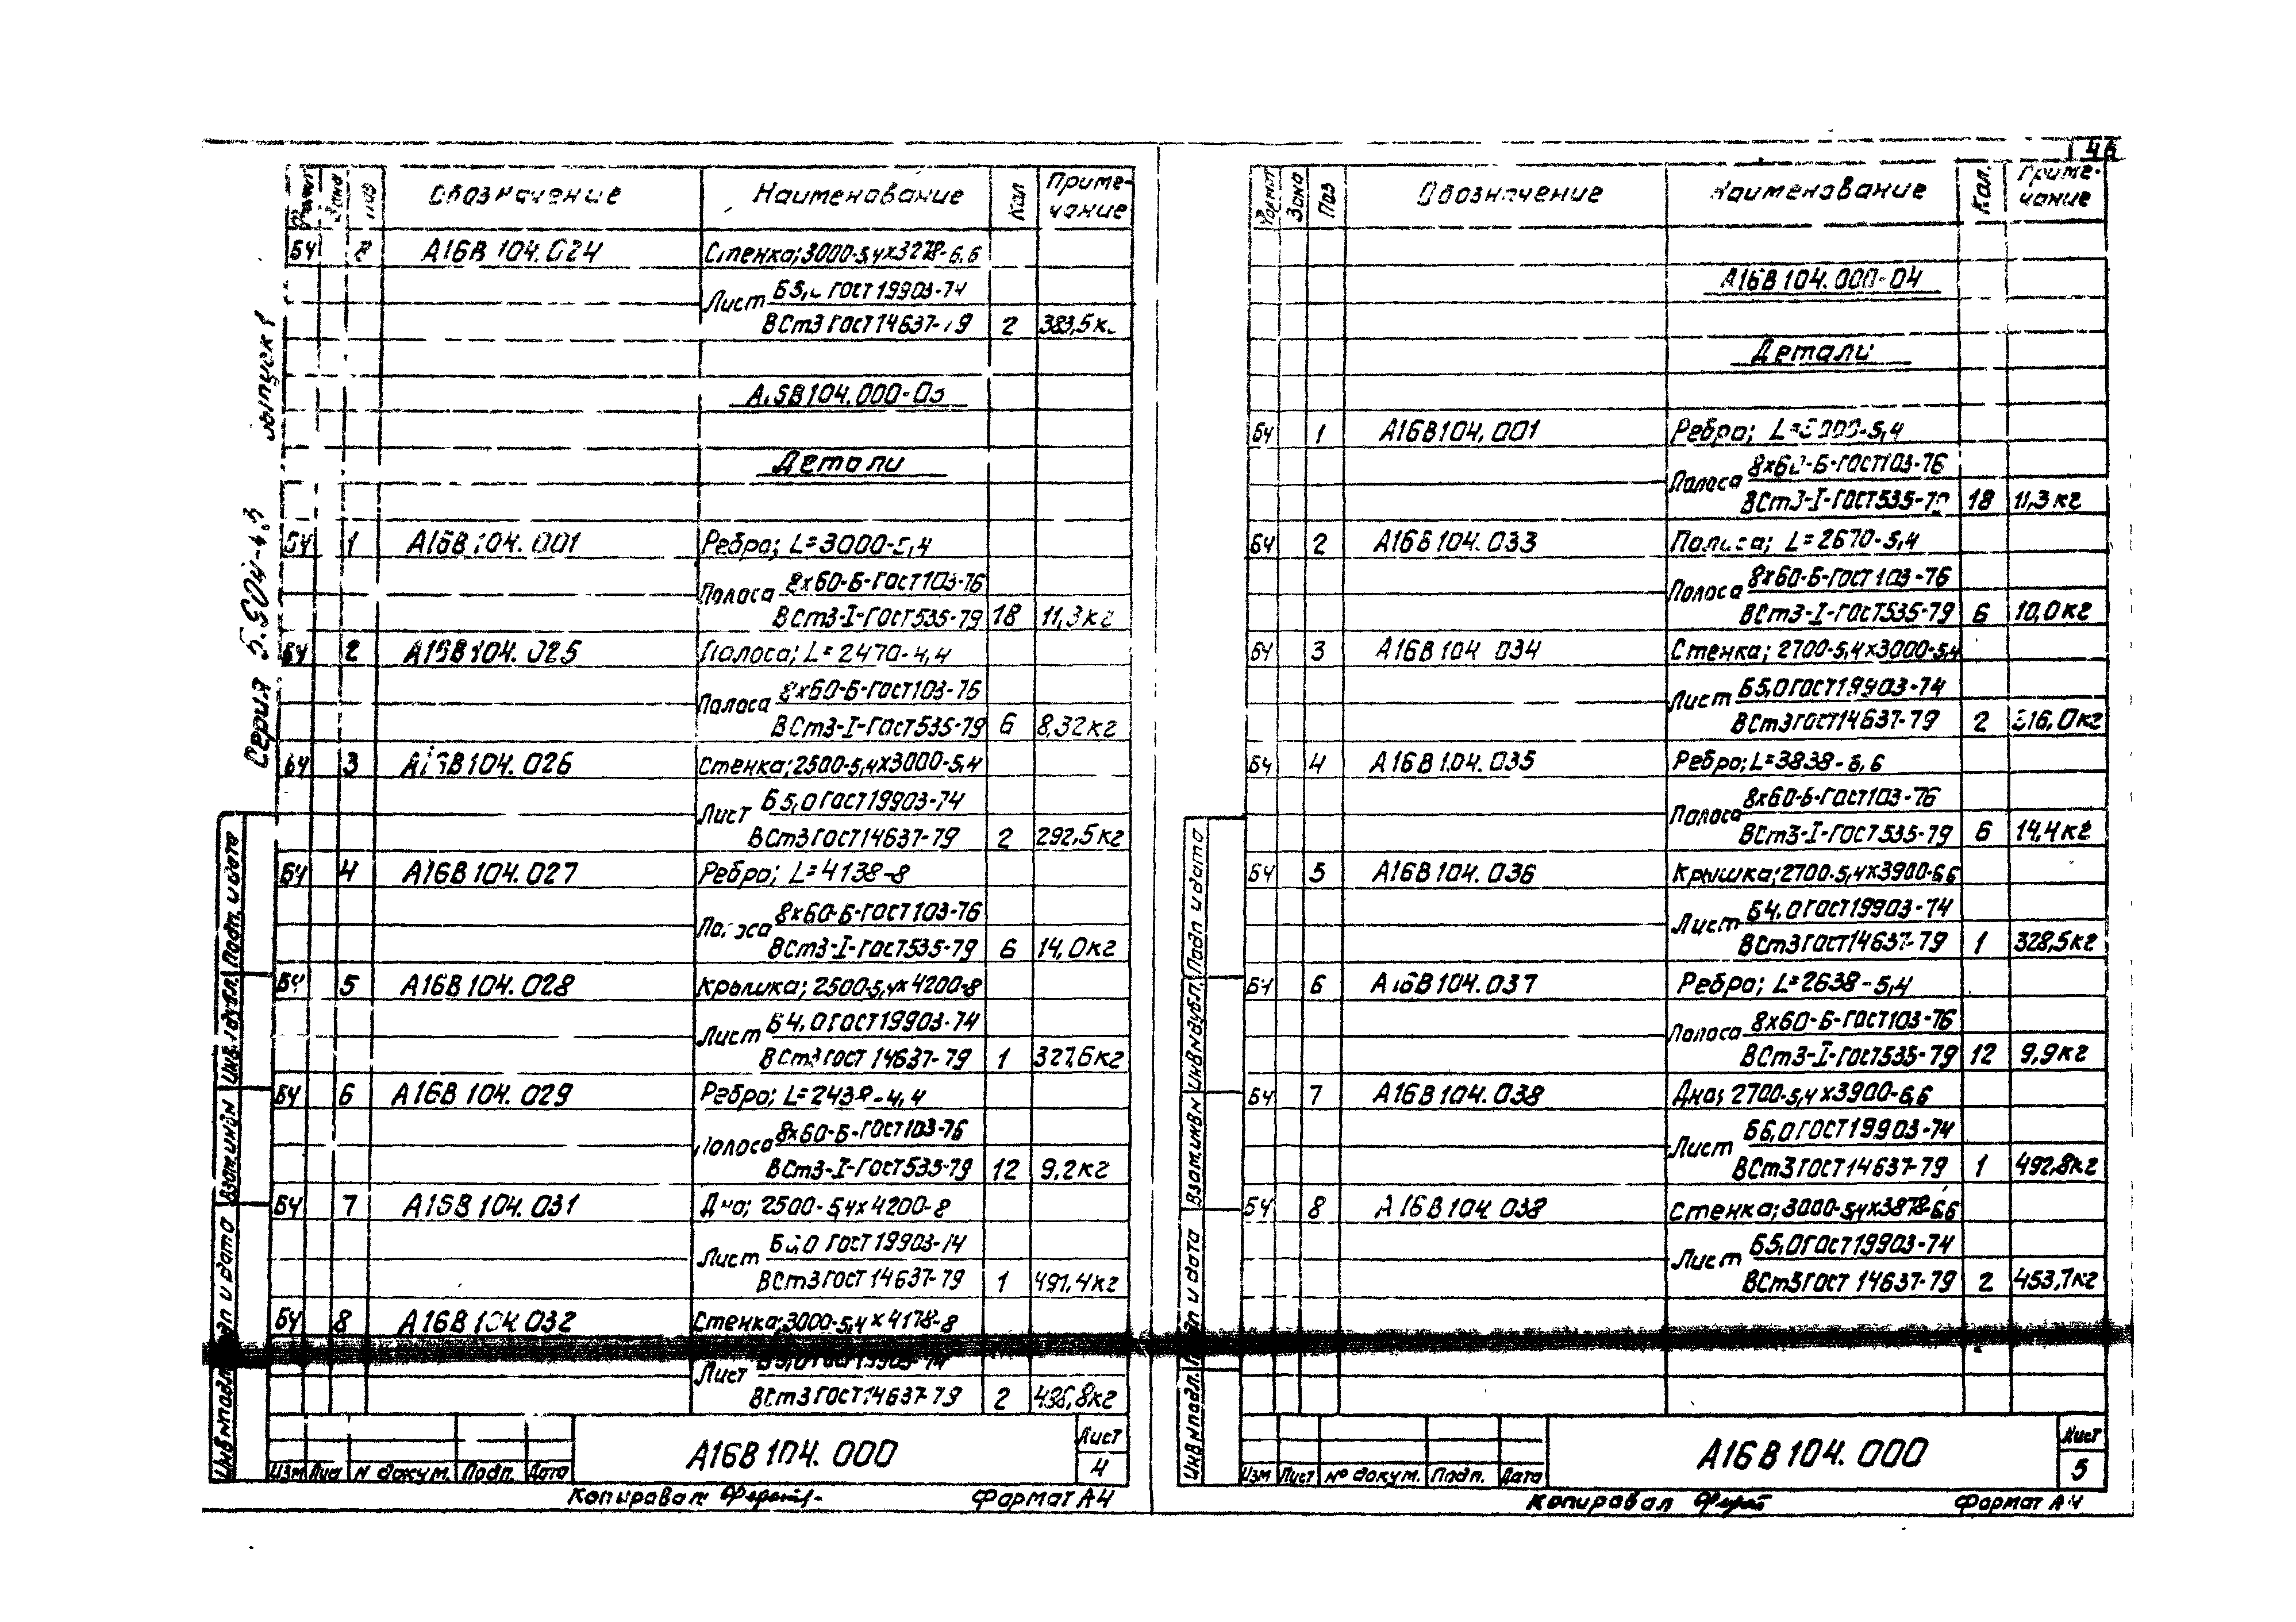 46
Серия 5.904-43 выпуск 1
Формат Зона Поз Обозначение Наименование Кол Приме-
чание
БЧ 8 А16В 104.024 Стенка; 3000-5,4х3278-6,6
Лист Б5,0 ГОСТ 19903-74
ВСт3 ГОСТ 14637-79 2 383,5к
А16В104.000-03
Детали
БЧ 1 А16В 104.001 Ребро; L=3000-5,4
Полоса 8х60-Б-ГОСТ103-76
ВСт3-I-ГОСТ535-79 18 11,3кг
БЧ 2 А16В104.025 Полоса; L=2470-4,4
Полоса 8х60-Б-ГОСТ103-76
ВСт3-I-ГОСТ535-79 6 8,32кг
БЧ 3 А16В104.026 Стенка; 2500-5,4х3000-5,4
Лист Б5,0 ГОСТ19903-74
ВСт3 ГОСТ14637-79 2 292,5кг
БЧ 4 А16В104.027 Ребро; L=4138-8
Полоса 8х60-Б-ГОСТ103-76
ВСт3-I-ГОСТ535-79 6 14,0кг
БЧ 5 А16В104.028 Крышка; 2500-5,4х4200-8
Лист Б4,0 ГОСТ19903-74
ВСт3 ГОСТ 14637-79 1 327,6кг
БЧ 6 А16В 104.029 Ребро; L=2438-4,4
Полоса 8х60-Б-ГОСТ103-76
ВСт3-I-ГОСТ535-79 12 9,2кг
БЧ 7 А16В 104.031 Дно; 2500-5,4х4200-8
Лист Б6,0 ГОСТ 19903-74
ВСт3 ГОСТ 14637-79 1 491,4кг
БЧ 8 А16В 104.032 Стенка; 3000-5,4х4178-8
Лист Б5,0 ГОСТ19903-74
ВСт3 ГОСТ14637-79 2 ,8кг
Инв N подл. Подп и дата Взам инв N Инв. N дубл. Подп. и дата
Изм Лист N докум. Подп. Дата
А16В 104.000
Лист
4
Копировал Формат А4
Формат Зона Поз Обозначение Наименование Кол. Приме-
чание
А16В104.000-04
Детали
БЧ 1 А16В104.001 Ребро; L=3000-5,4
Полоса 8х60-Б-ГОСТ103-76
ВСт3-I-ГОСТ535-79 18 11,3кг
БЧ 2 А16В104.033 Полоса; L=2670-5,4
Полоса 8х60-Б-ГОСТ103-76
ВСт3-I-ГОСТ535-79 6 10,0кг
БЧ 3 А16В104 034 Стенка; 2700-5,4х3000-5,4
Лист Б5,0 ГОСТ19903-74
ВСт3 ГОСТ14637-79 2 316,0кг
БЧ 4 А16В104.035 Ребро; L=3838-6,6
Полоса 8х60-Б-ГОСТ103-76
ВСт3-I-ГОСТ535-79 6 14,4кг
БЧ 5 А16В104.036 Крышка; 2700-5,4х3900-6,6
Лист Б4,0 ГОСТ19903-74
ВСт3 ГОСТ14637-79 1 328,5кг
БЧ 6 А16В104.037 Ребро; L=2638-5,4
Полоса 8х60-Б-ГОСТ103-76
ВСт3-I-ГОСТ535-79 12 9,9кг
БЧ 7 А16В104.038 Дно; 2700-5,4х3900-6,6
Лист Б6,0 ГОСТ19903-74
ВСт3 ГОСТ14637-79 1 492,8кг
БЧ 8 А16В104.038 Стенка; 3000-5,4х3878-6,6
Лист Б5,0 ГОСТ19903-74
ВСт3 ГОСТ 14637-79 2 453,7кг
Инв N подл. Подп и дата Взам. инв N Инв N дубл. Подп и дата
Изм Лист № докум. Подп. Дата
А16В104.000
Лист
5
Копировал Формат А4